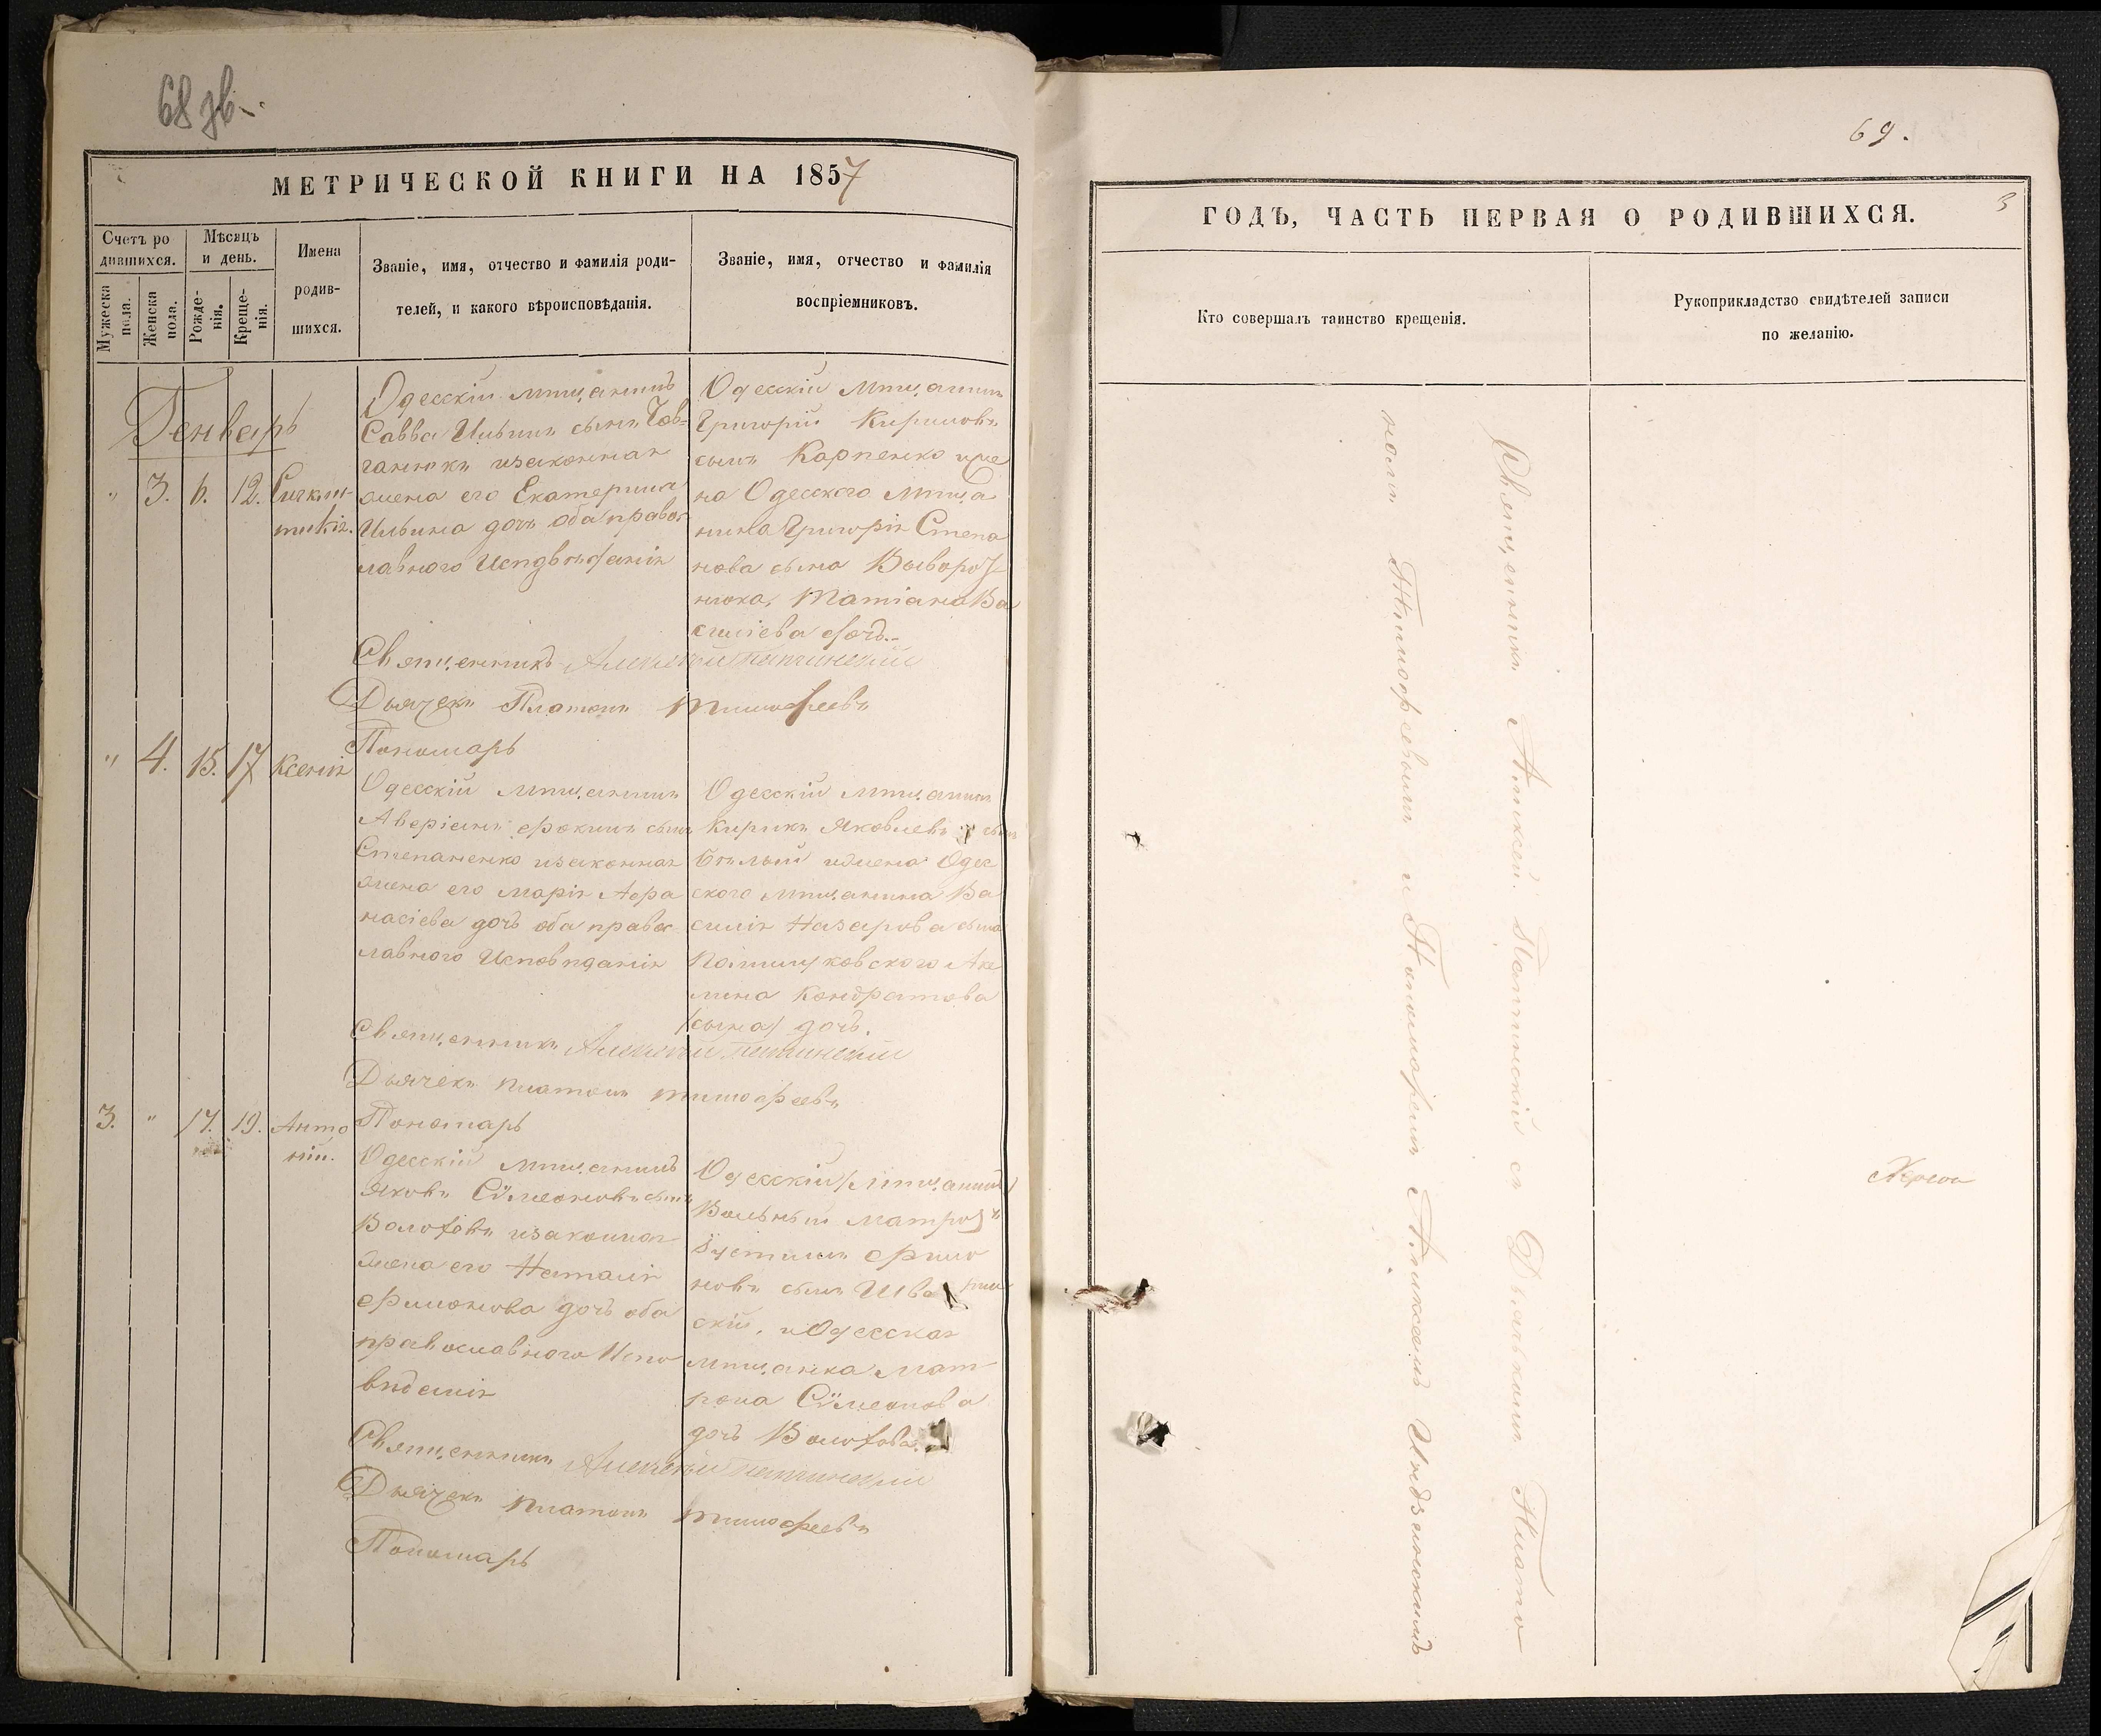 68 зв.
МЕТРИЧЕСКОЙ КНИГИ НА 1857
Счетъ ро
дившихся.
Мужеска
пола.
Женска
пола.
Мѣсяцъ
и день.
Рожде-
нія.
Креще-
нія.
Имена
родив-
шихся.
Званіе, имя, отчество и фамилія роди-
телей, и какого вѣроисповѣданія.
Званіе, имя, отчество и фамилія
воспріемниковъ.
Генварь
" 3. 6. 12.
Одесскій мѣщанинъ
Савва Ильинъ сынъ
изаконная
жена его Екатерина
Ильина дочь оба правос
лавного Исповѣданія
Одесскій мѣщанинъ
Григорій Кириловъ
сынъ Карпенко иже
на Одесского мѣща
нина Григорія Степа
нова сына
Татіана Ва
силіева дочь.
Священникъ Алексѣй
Дьячекъ Платонъ Тимофеевъ
Пономарь
" 4. 15. 17 Ксенія
Одесскій мѣщанинъ
Аверіанъ фокинъ сынъ
Степаненко изаконная
жена его Марія Афа
насіева дочь оба правос
лавного Исповѣданія
Одесскій мѣщанинъ
Кирикъ Яковлевъ сынъ
Бѣлый ижена Одес
ского мѣщанина Ва
силія Назарова сына
Аке
лина Кондратова
/сына/ дочь.
Священникъ Алексѣй
Дьячекъ Платонъ Тимофеевъ
Пономарь
3. " 17. 19. Анто
ній.
Одесскій мѣщанинъ
Яковъ Сѵмеоновъ сынъ
Волоховъ изаконная
жена его Наталія
филионова дочь оба
православного Испо
вѣданія
Одесскій /мѣщанинъ/
Вольный матрозъ
Іустинъ
новъ сынъ
скій, и Одесская
мѣщанка Мат
рона Сѵмеонова
дочь Волохова.
Священникъ Алексѣй
Дьячекъ Платонъ Тимофеевъ
Пономарь
69.
3
ГОДЪ, ЧАСТЬ ПЕРВАЯ О РОДИВШИХСЯ.
Кто совершалъ таинство крещенія.
Рукоприкладство свидѣтелей записи
по желанію.
Священникъ Алексѣй съ Дьячькомъ Плато
номъ Тимофеевымъ и Пономаремъ Алексѣемъ
Херсон